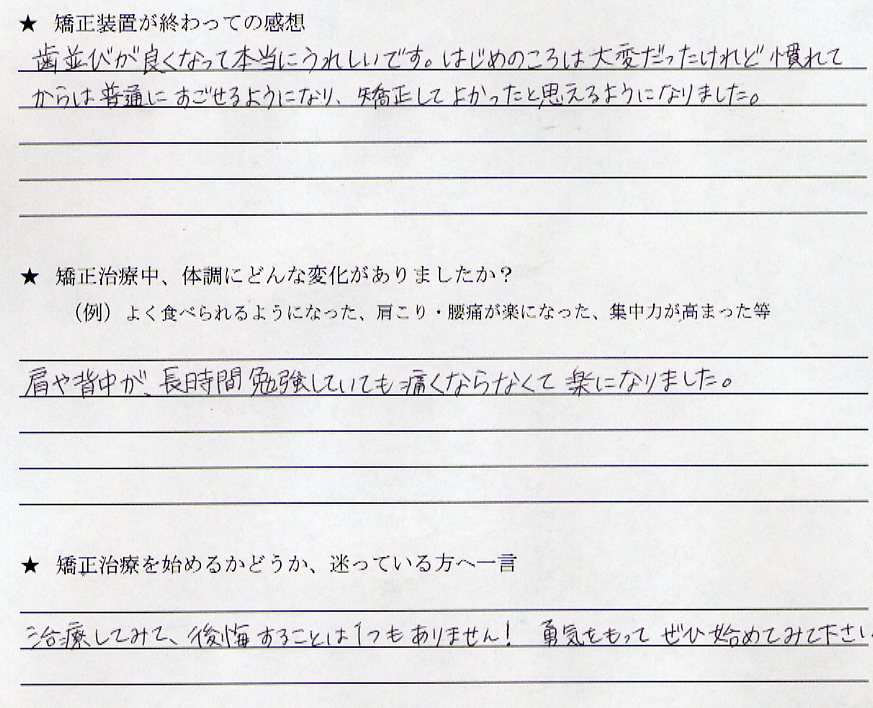 ★ 矯正装置が終わっての感想
歯並びが良くなって本当にうれしいです。はじめのころは大変だったけれど慣れて
からは普通にすごせるようになり、矯正してよかったと思えるようになりました。
★ 矯正治療中、体調にどんな変化がありましたか？
（例）よく食べられるようになった、肩こり・腰痛が楽になった、集中力が高まった等
肩や背中が、長時間勉強していても痛くならなくて楽になりました。
★ 矯正治療を始めるかどうか、迷っている方へ一言
治療してみて、後悔することは1つもありません！ 勇気をもってぜひ始めてみて下さい